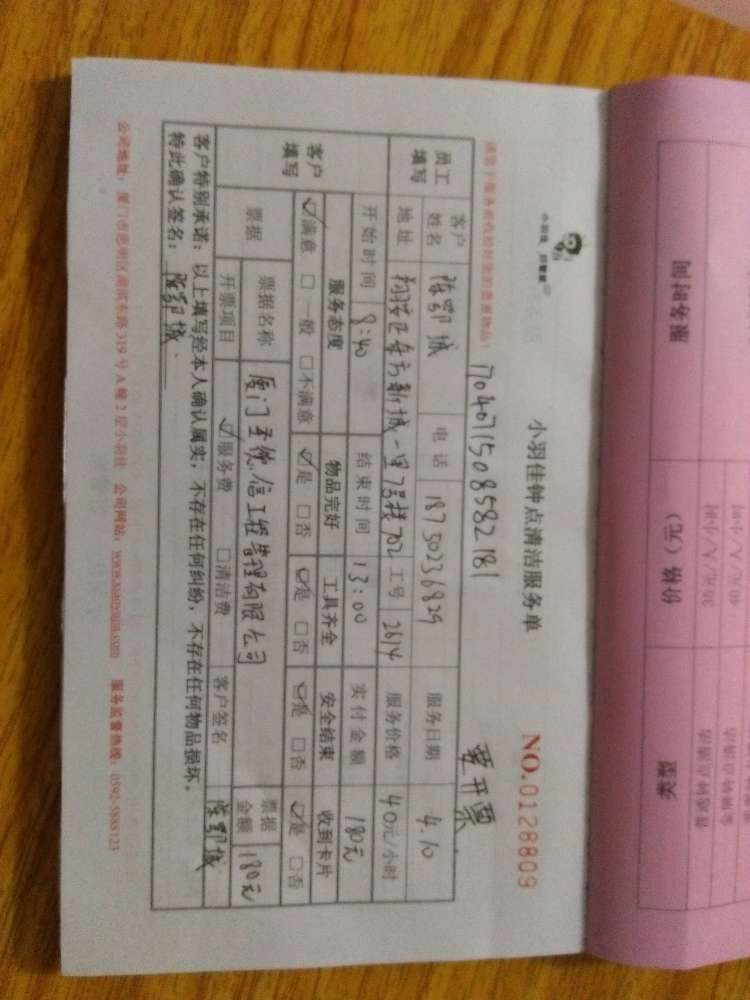 小羽佳 好管家
小羽佳钟点清洁服务单 NO.0128809
1704071508582181 要开票
员工填写 客户姓名 陈鄂城 电话 18750236829 服务日期 4.10
地址 翔安区东方新城一里7号楼702 工号 2614 服务价格 40元/小时
开始时间 8:40 结束时间 13:00 实付金额 180元
客户填写 服务态度 物品完好 工具齐全 安全结束 收到卡片
☑满意 □一般 □不满意 ☑是 □否 ☑是 □否 ☑是 □否 ☑是 □否
票据 票据名称 信工程管理有限公司 票据金额 180元
开票项目 ☑服务费 □清洁费 客户签名 陈鄂城
客户特别承诺：以上填写经本人确认属实，不存在任何纠纷，不存在任何物品损坏，
特此确认签名：陈鄂城
公司地址：厦门市思明区湖滨东路319号A幢2层小羽佳 公司网站：www.xiaoyujia.com 服务监督热线：0592-5888123
类型 价格（元） 服务时间
普通钟点清洁 30元/人/小时
金牌钟点清洁 40元/人/小时